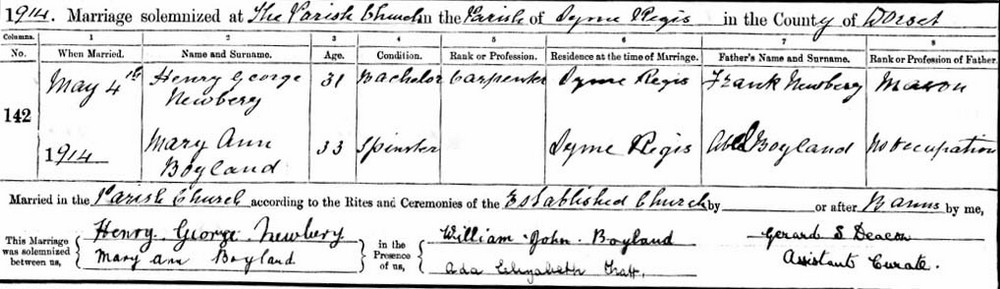 1914. Marriage solemnized at The Parish Church in the Parish of Lyme Regis in the County of Dorset
Columns. 1 2 3 4 5 6 7 8
No. When Married. Name and Surname. Age. Condition. Rank or Profession. Residence at the time of Marriage. Father's Name and Surname. Rank or Profession of Father.
142
May 4th Henry George Newbery 31 Bachelor Carpenter Lyme Regis Frank Newbery Mason
1914 Mary Ann Boyland 33 Spinster Lyme Regis Abel Boyland No occupation
Married in the Parish Church according to the Rites and Ceremonies of the Established Church by or after Banns by me,
This Marriage was solemnized between us,
Henry George Newbery
Mary Ann Boyland
in the Presence of us,
William John Boyland
Ada Elizabeth
Gerard S Deacon
Assistant Curate.